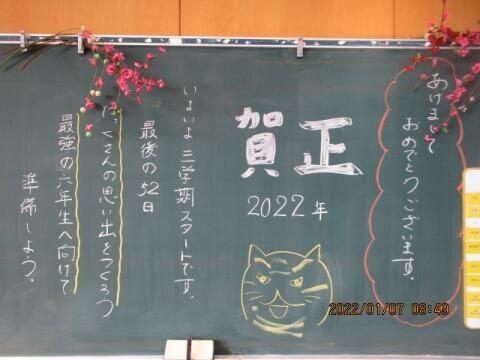 あけまして
おめでとうございます。
賀正
2022年
いよいよ三学期スタートです。
最後の52日
たくさんの思い出をつくろう
最強の六年生へ向けて
準備しよう。
2022/01/07 08:49